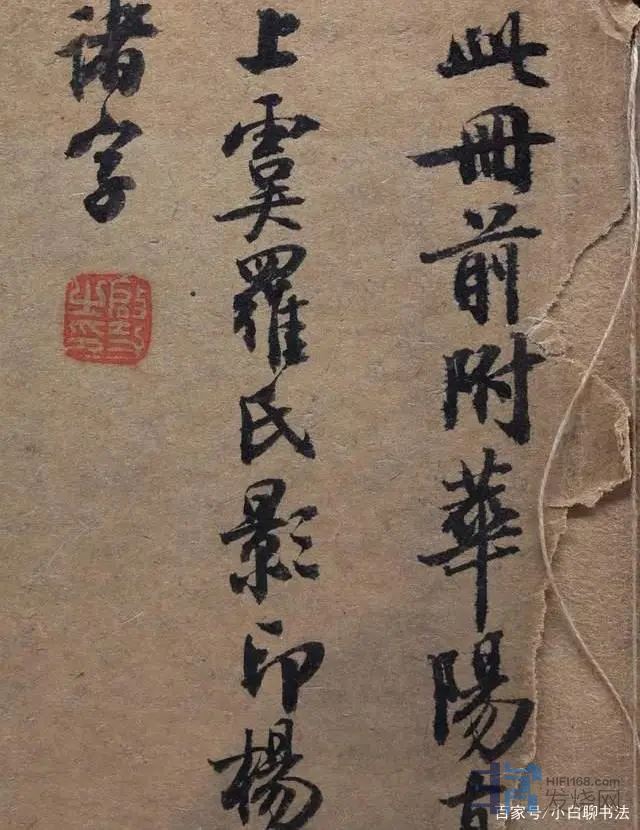 此冊前附華陽
上虞羅氏影印楊
諸字
HIFI168.com
发烧网
百家号/小白聊书法